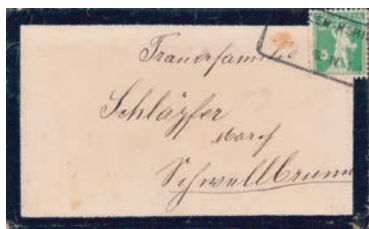 Trauerfam.
Schläpfer
Schwellbrunn